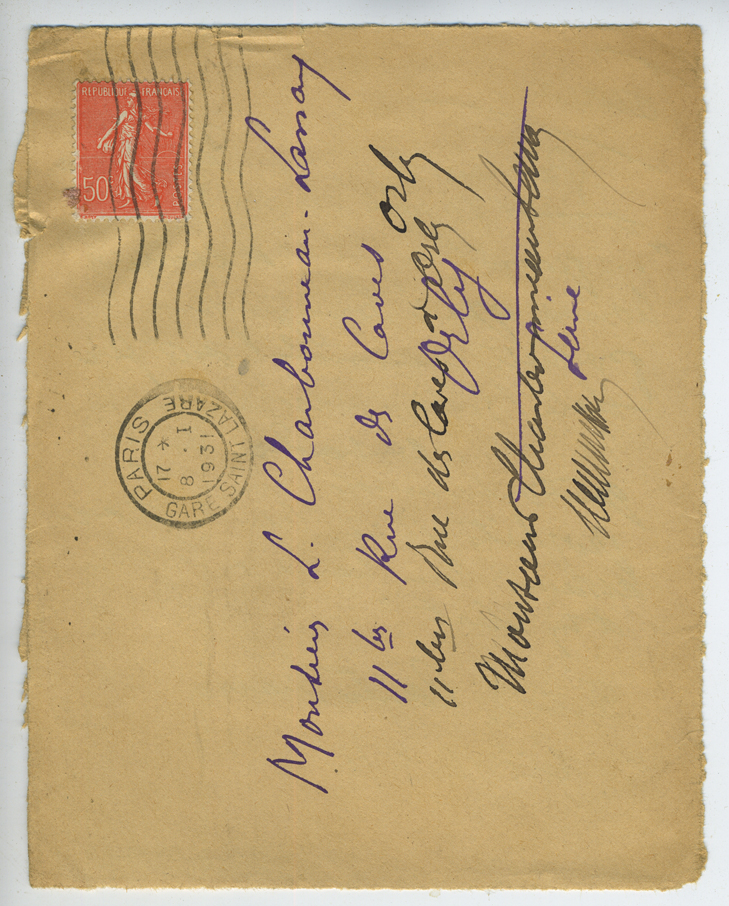 REPUBLIQUE FRANÇAISE
50c
POSTES
PARIS
17 *
8 . I
1931
GARE SAINT LAZARE
Monsieur L. Charbonneau-Lassay
11 bis Rue des Caves
Orly
11 bis Rue des Caves à Orly
Orly
Monsieur Charbonneau Lassay
Seine